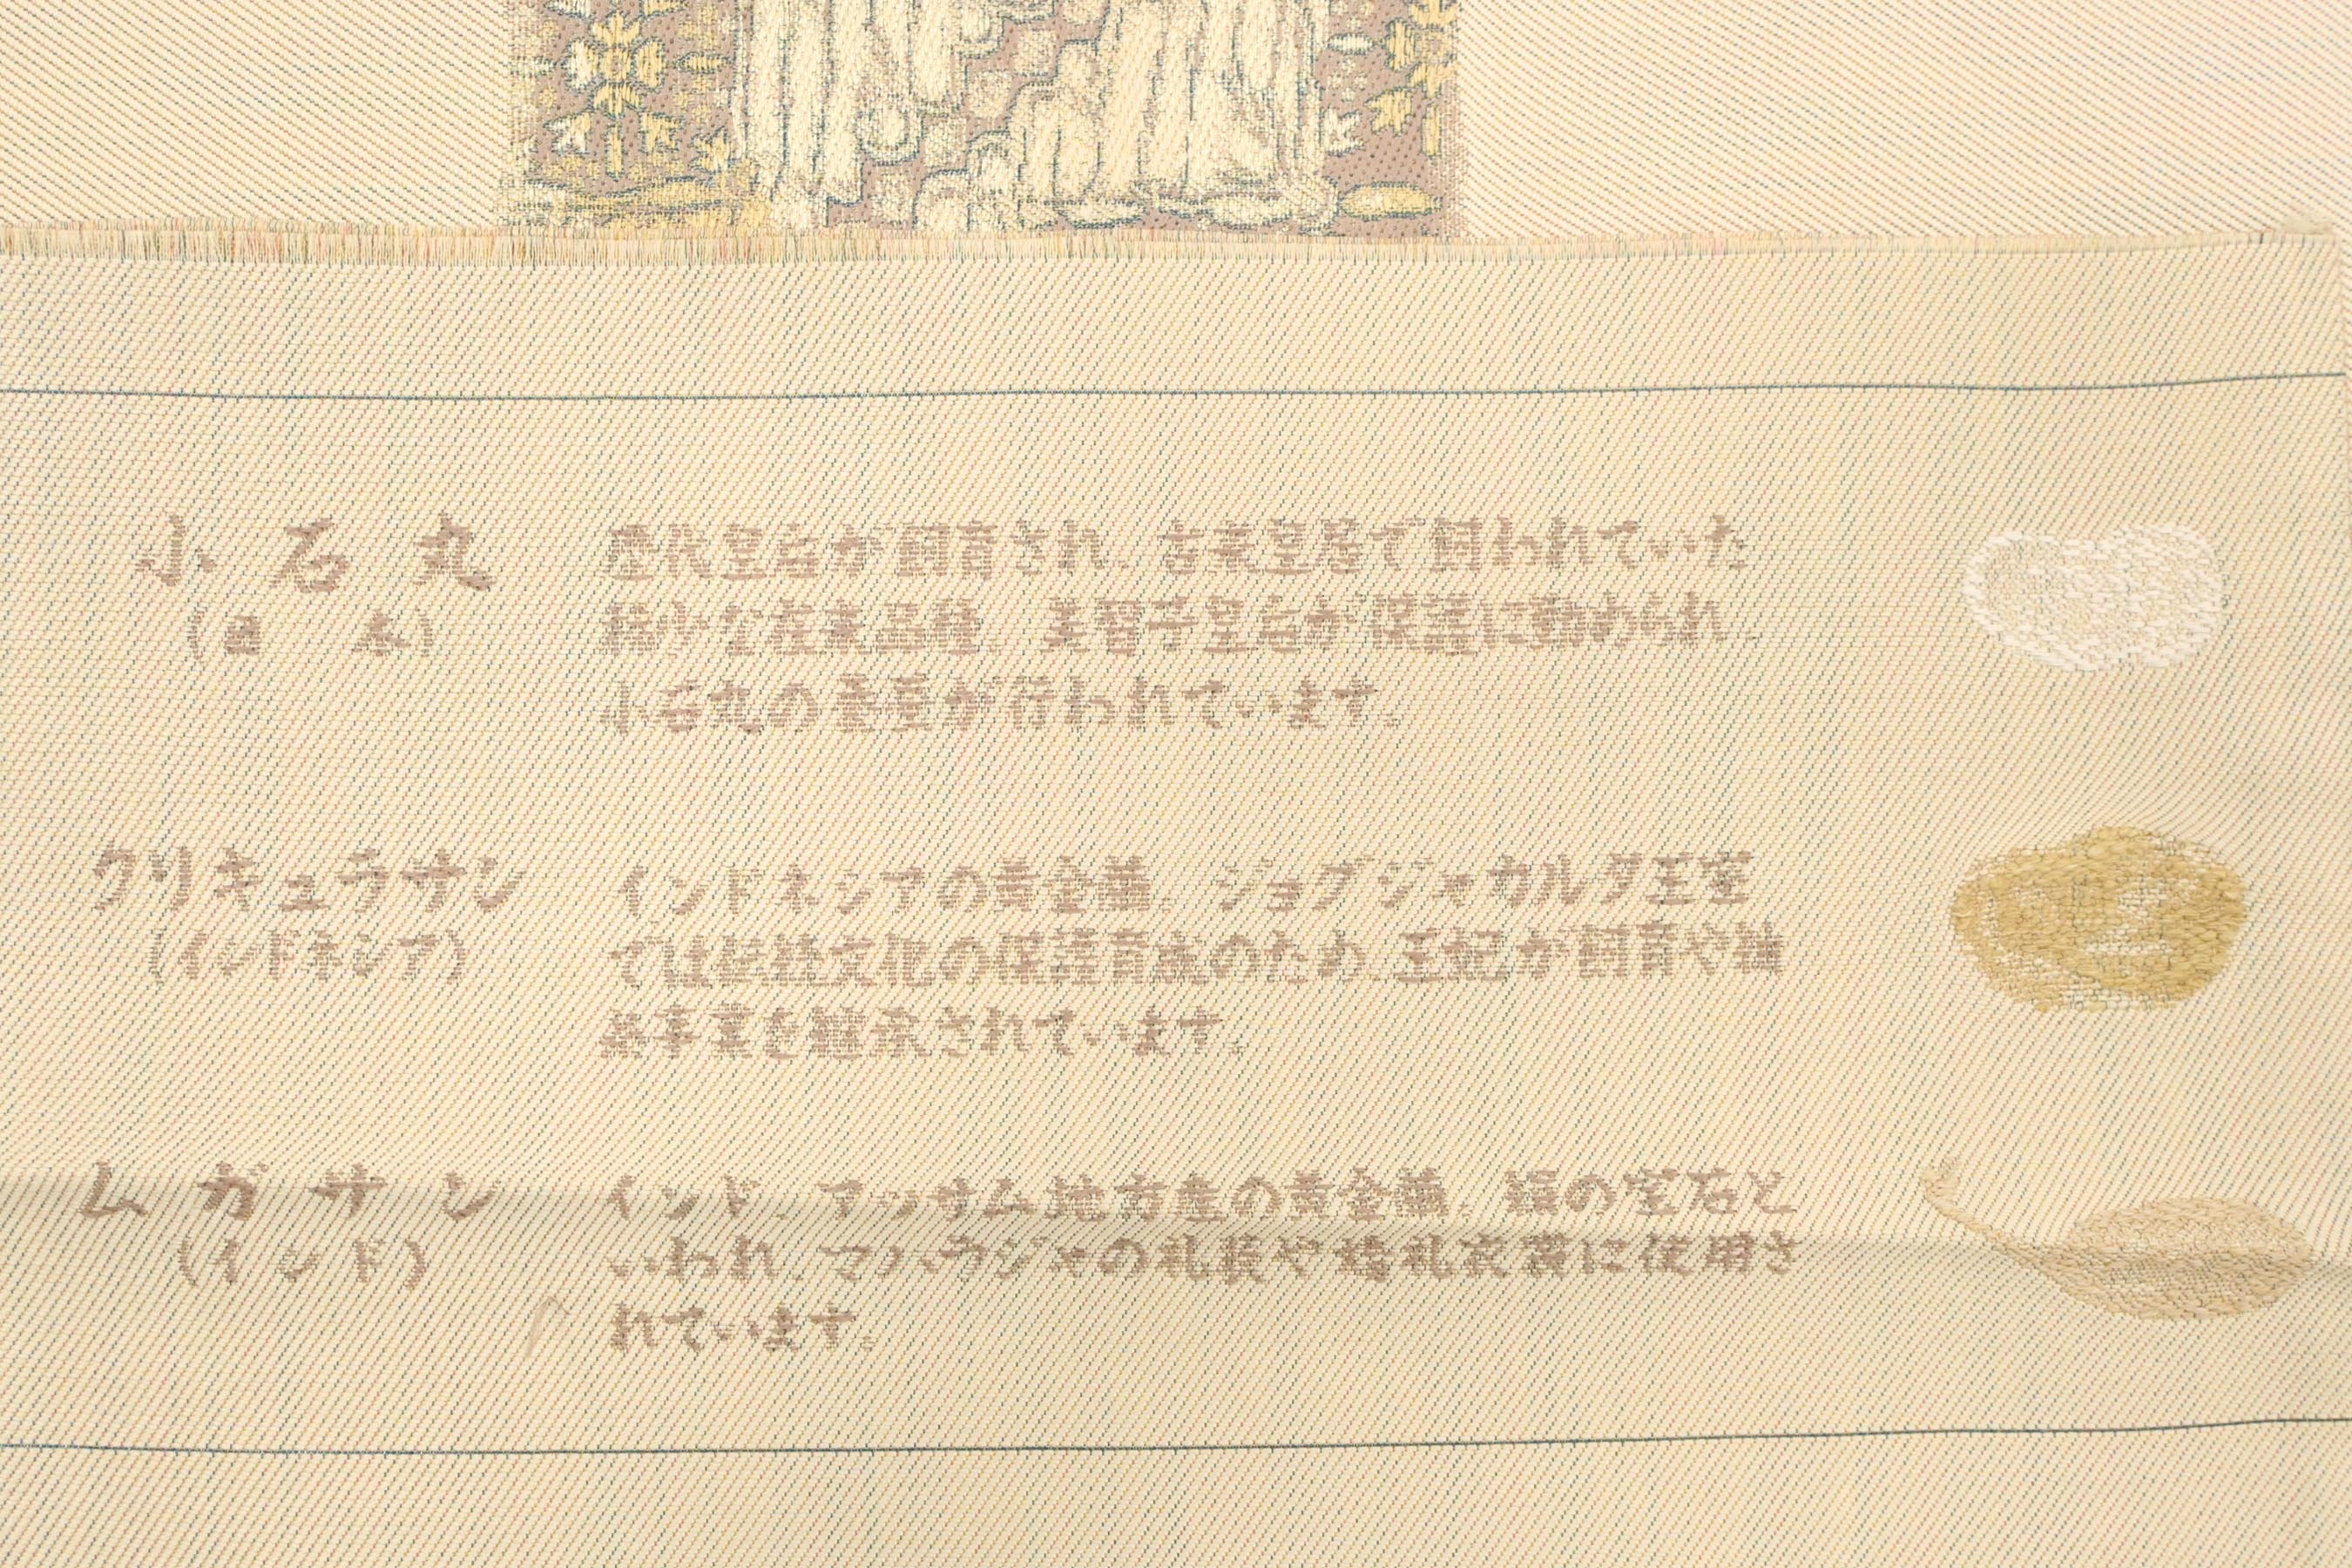 小石丸
(日本)
歴代皇后が飼育され、古来皇居で飼われていた
稀少な在来品種。美智子皇后が保護に勤められ、
小石丸の養蚕が行われています。
クリキュラサン
(インドネシア)
インドネシアの黄金繭。ジョグジャカルタ王室
では伝統文化の保護育成のため、王妃が飼育や機
糸事業を継承されています。
ムガサン
(インド)
インド、アッサム地方産の黄金繭。繭の宝石と
いわれ、マハラジャの礼装や婚礼衣装に使用さ
れています。